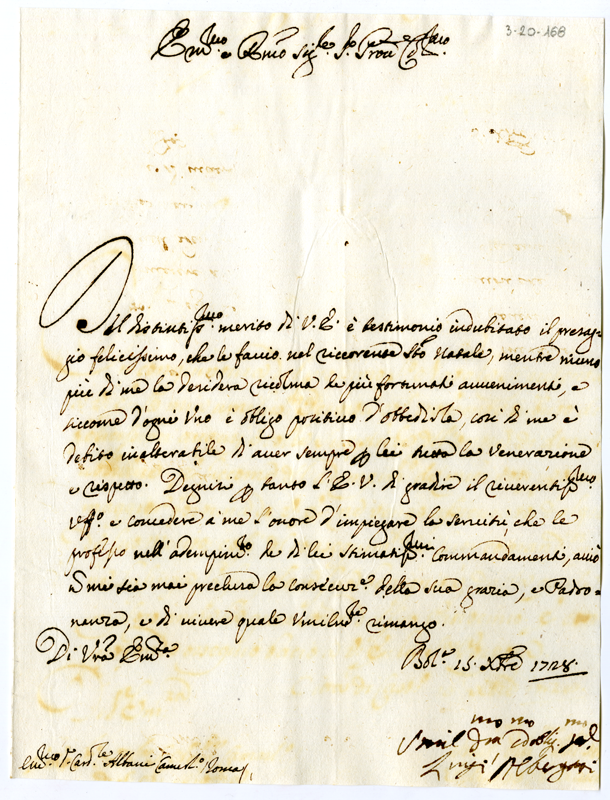 3-20-168
Em.mo e Rmo Sig.re Prõn Col.mo
Del distintiss.mo merito di V. E. è testimonio indubitato il presag-
gio felicissimo, che le faccio nel riccorente Sto Natale, mentre niuno
più di me la desidera ricolma de più fortunati avvenimenti, e
siccome d'ogni Uno è obligo positivo d'obbedirla, così di me è
debito inalterabile di aver sempre per lei tutta la venerazione
e rispetto. Degnisi per tanto l'E. V. di gradire il riverentiss.mo
uff.o e concedere à me l'onore d'impiegare la servitù, che le
professo nell'adempim.to de di lei stimatiss.mi commandamenti, acciò
non mi sia mai preclusa la consecuz.e della sua grazia, e Padro-
nanza, e di vivere quale Umilm.te rimango.
Di Vrã Em.za
Bol.a 15. Xbre 1728.
Umil.mo Dmo ed Obblig.mo
Luigi Albergati
Em.mo Sr. Card.le Albani Camerl.o Roma